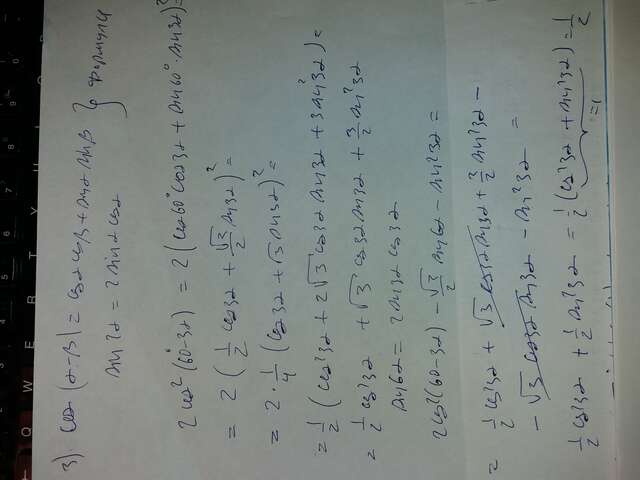 3) cos(α-β) = cosα cosβ + sinα sinβ } формулы
sin 2α = 2 sinα cosα
2cos²(60°-3α) = 2(cos60°cos3α + sin60°·sin3α)²=
= 2(1/2 cos3α + √3/2 sin3α)² =
= 2·1/4 (cos3α + √3 sin3α)² =
= 1/2 (cos²3α + 2√3 cos3α sin3α + 3sin²3α) =
= 1/2 cos²3α + √3 cos3α sin3α + 3/2 sin²3α
sin6α = 2 sin3α cos3α
2cos²(60-3α) - √3/2 sin6α - sin²3α =
= 1/2 cos²3α + √3 cos3α sin3α + 3/2 sin²3α -
- √3 cos3α sin3α - sin²3α =
1/2 cos²3α + 1/2 sin²3α = 1/2 (cos²3α + sin²3α) = 1/2
=1
Q W E R T Y U